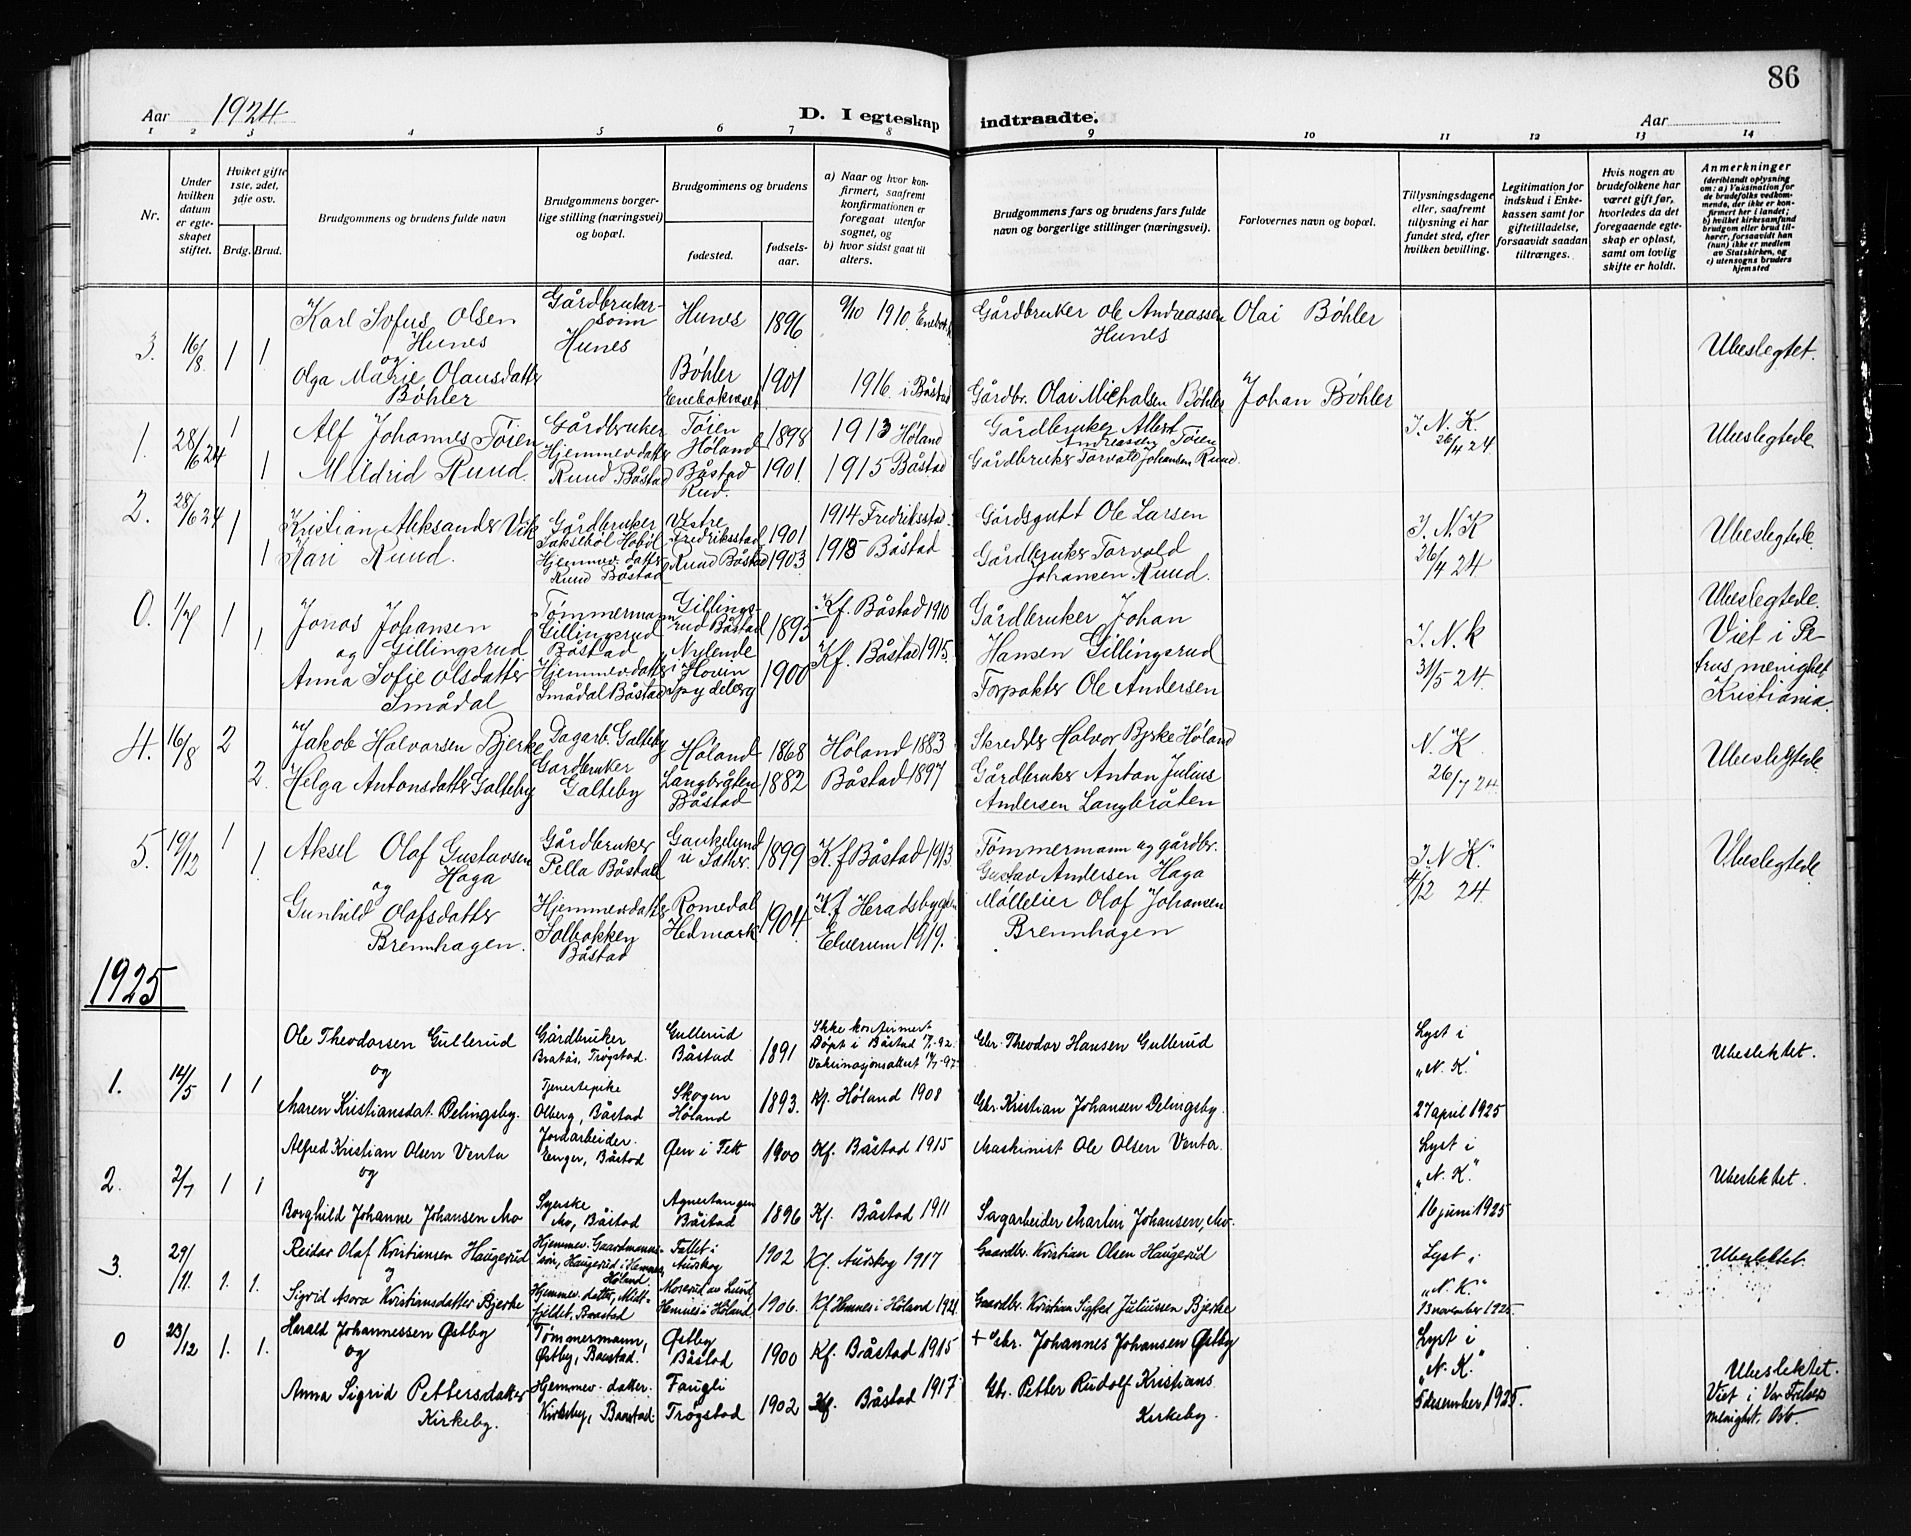 86
Aar 1924
D. I egteskap indtraadte.
Aar
1 2 3 4 5 6 7 8 9 10 11 12 13 14
Nr.
Under hvilken datum er egteskapet stiftet.
Hviket gifte 1ste, 2det, 3dje osv.
Brdg. Brud.
Brudgommens og brudens fulde navn
Brudgommens borgerlige stilling (næringsvei) og bopæl.
Brudgommens og brudens
fødested.
fødselsaar.
a) Naar og hvor konfirmert, saafremt konfirmationen er foregaat utenfor sognet, og
b) hvor sidst gaat til alters.
Brudgommens fars og brudens fars fulde navn og borgerlige stillinger (næringsvei).
Forlovernes navn og bopæl.
Tillysningsdagene eller, saafremt tillysning ei har fundet sted, efter hvilken bevilling.
Legitimation for indskud i Enkekassen samt for giftetilladelse, forsaavidt saadan tiltrænges.
Hvis nogen av brudefolkene har været gift før, hvorledes da det foregaaende egteskap er opløst, samt om lovlig skifte er holdt.
Anmerkninger
(deriblandt oplysning om: a) Vaksination for de brudefolks vedkommende, der ikke er konfirmert her i landet; b) hvilket kirkesamfund brudgom eller brud tilhører, forsaavidt han (hun) ikke er medlem av Statskirken, og c) utensogns bruders hjemsted
3. 16/8 1 1
Karl Sofus Olsen Hunes
og
Olga Marie Olausdatter Bøhler
Gårdbrukersønn Hunes
Hunes 1896 9/10 1910 Enebak
Bøhler Enebakvaset 1901 1916 i Båstad
Gårdbruker Ole Andreassen Hunes
Gårdbr. Olai Michalsen Bøhler
Olai Bøhler
Johan Bøhler
Ubeslegtet.
1. 28/6 24 1 1
Alf Johannes Tøien
Mildrid Ruud.
Gårdbruker
Hjemmev datter Ruud Båstad
Tøien Høland 1898 1913 Høland
Båstad Rud. 1901. 1915 Båstad
Gårdbruker Albert Andreassen Tøien
Gårdbruker Torvald Johansen Ruud.
I. N. K. 26/4 24
Ubeslegtede
2. 28/6 24 1 1
Kristian Aleksander Vik
Kari Ruud.
Gårdbruker Saksebøl Hobøl
Hjemmev. datter Ruud Båstad
Vestre Fredriksstad 1901 1914 Fredriksstad
Ruud Båstad 1903 1918 Båstad
Gårdsgutt Ole Larsen
Gårdbruker Torvald Johansen Ruud.
I. N. K 26/4 24
Ubeslegtede.
0. 1/7 1 1
Jonas Johansen Gillingsrud
og
Anna Sofie Olsdatter Smådal
Tømmermann Gillingsrud Båstad
Hjemmevdatter Smådal Båstad
Gillingsrud Båstad 1895 Kf. Båstad 1910
Nylende i Hovin Spydeberg 1900 Kf. Båstad 1915.
Gårdbruker Johan Hansen Gillingsrud
Forpakter Ole Andersen
I. N. K 31/5 24.
Ubeslegtede. Viet i Petrus menighet Kristiania.
4. 16/8 2 2.
Jakob Halvorsen Bjerke
Helga Antonsdatter Galteby
Dagarb. Galteby
Gardbruker Galteby
Høland 1868 Høland 1883
Langbråten Båstad 1882 Båstad 1897
Skredder Halvor Bjerke Høland
Gårdbruker Anton Julius Andersen Langbråten
N. K. 26/7 24
Ubeslegtede
5. 19/12 1 1.
Aksel Olaf Gustavsen Haga
og
Gunhild Olafsdatter Brennhagen.
Gårdbruker Pella Båstad
Hjemmevdatter Solbakken Båstad
Gaukelund 1899 K. f Båstad 1913
Romedal Hedmark 1904 K. f Heradsbygden Elverum 1919.
Tømmermann og gårdbr. Gustav Andersen Haga
Møllelier Olaf Johansen Brennhagen
I. N. K." 4/12 24.
Ubeslegtede
1925
1. 14/5 1 1
Ole Theodorsen Gullerud
og
Maren Kristiansdat. Delingsby.
Gårdbruker Bratås, Trøgstad.
Tjenestepike Olberg, Båstad
Gullerud Båstad 1891
Ikke konfirmert Døpt i Båstad
Skogen Høland 1893. Kf. Høland 1908
Gbr. Theodor Hansen Gullerud
Gbr. Kristian Johansen Delingsby.
Lyst i "N. K." 27 april 1925
Ubeslektet.
2. 2/7 1 1
Alfred Kristian Olsen Venta
og
Borghild Johanne Johansen Mo
Jordarbeider. Enger, Båstad
Syerske Mo, Båstad
Øen i Tett 1900 Kf. Båstad 1915
Agnestangen Båstad 1896 Kf. Båstad 1911
Maskinist Ole Olsen Venta.
Sagarbeider Martin Johansen, Mo.
Lyst i "N. K." 16 juni 1925
Ubeslektet.
3. 29/11. 1. 1.
Reidar Olaf Kristiansen Haugerud
og
Sigrid Asora Kristiansdatter Bjerke
Hjemmev. Gaardmannssøn, Haugerud i Hemnes, Høland.
Hjemmev. datter, Midtfjeldet, Baastad
Fallet i Audskog 1902 Kf. Audskog 1917
Moserud av Lund Hemnes i Høland 1906. Kf Hemnes i Høland 1921
Gaardbr. Kristian Olsen Haugerud
Gaardbr. Kristian Sigfred Juliussen Bjerke
Lyst i "N. K." 13 november 1925
Ubeslektet.
0 23/12 1. 1.
Harald Johannessen Østby
og
Anna Sigrid Pettersdatter Kirkeby.
Tømmermann, Østby, Baastad.
Hjemmev. datter. Kirkeby, Baastad.
Østby Båstad 1900 Kf. Båstad 1915
Faugli Trøgstad 1902 Kf. Båstad 1917
+ Gbr. Johannes Johansen Østby
Gbr. Petter Rudolf Kristians. Kirkeby.
Lyst i "N. K." 5 desember 1925.
Ubeslektet. Viet i Vor Frelsers menighet. Oslo.